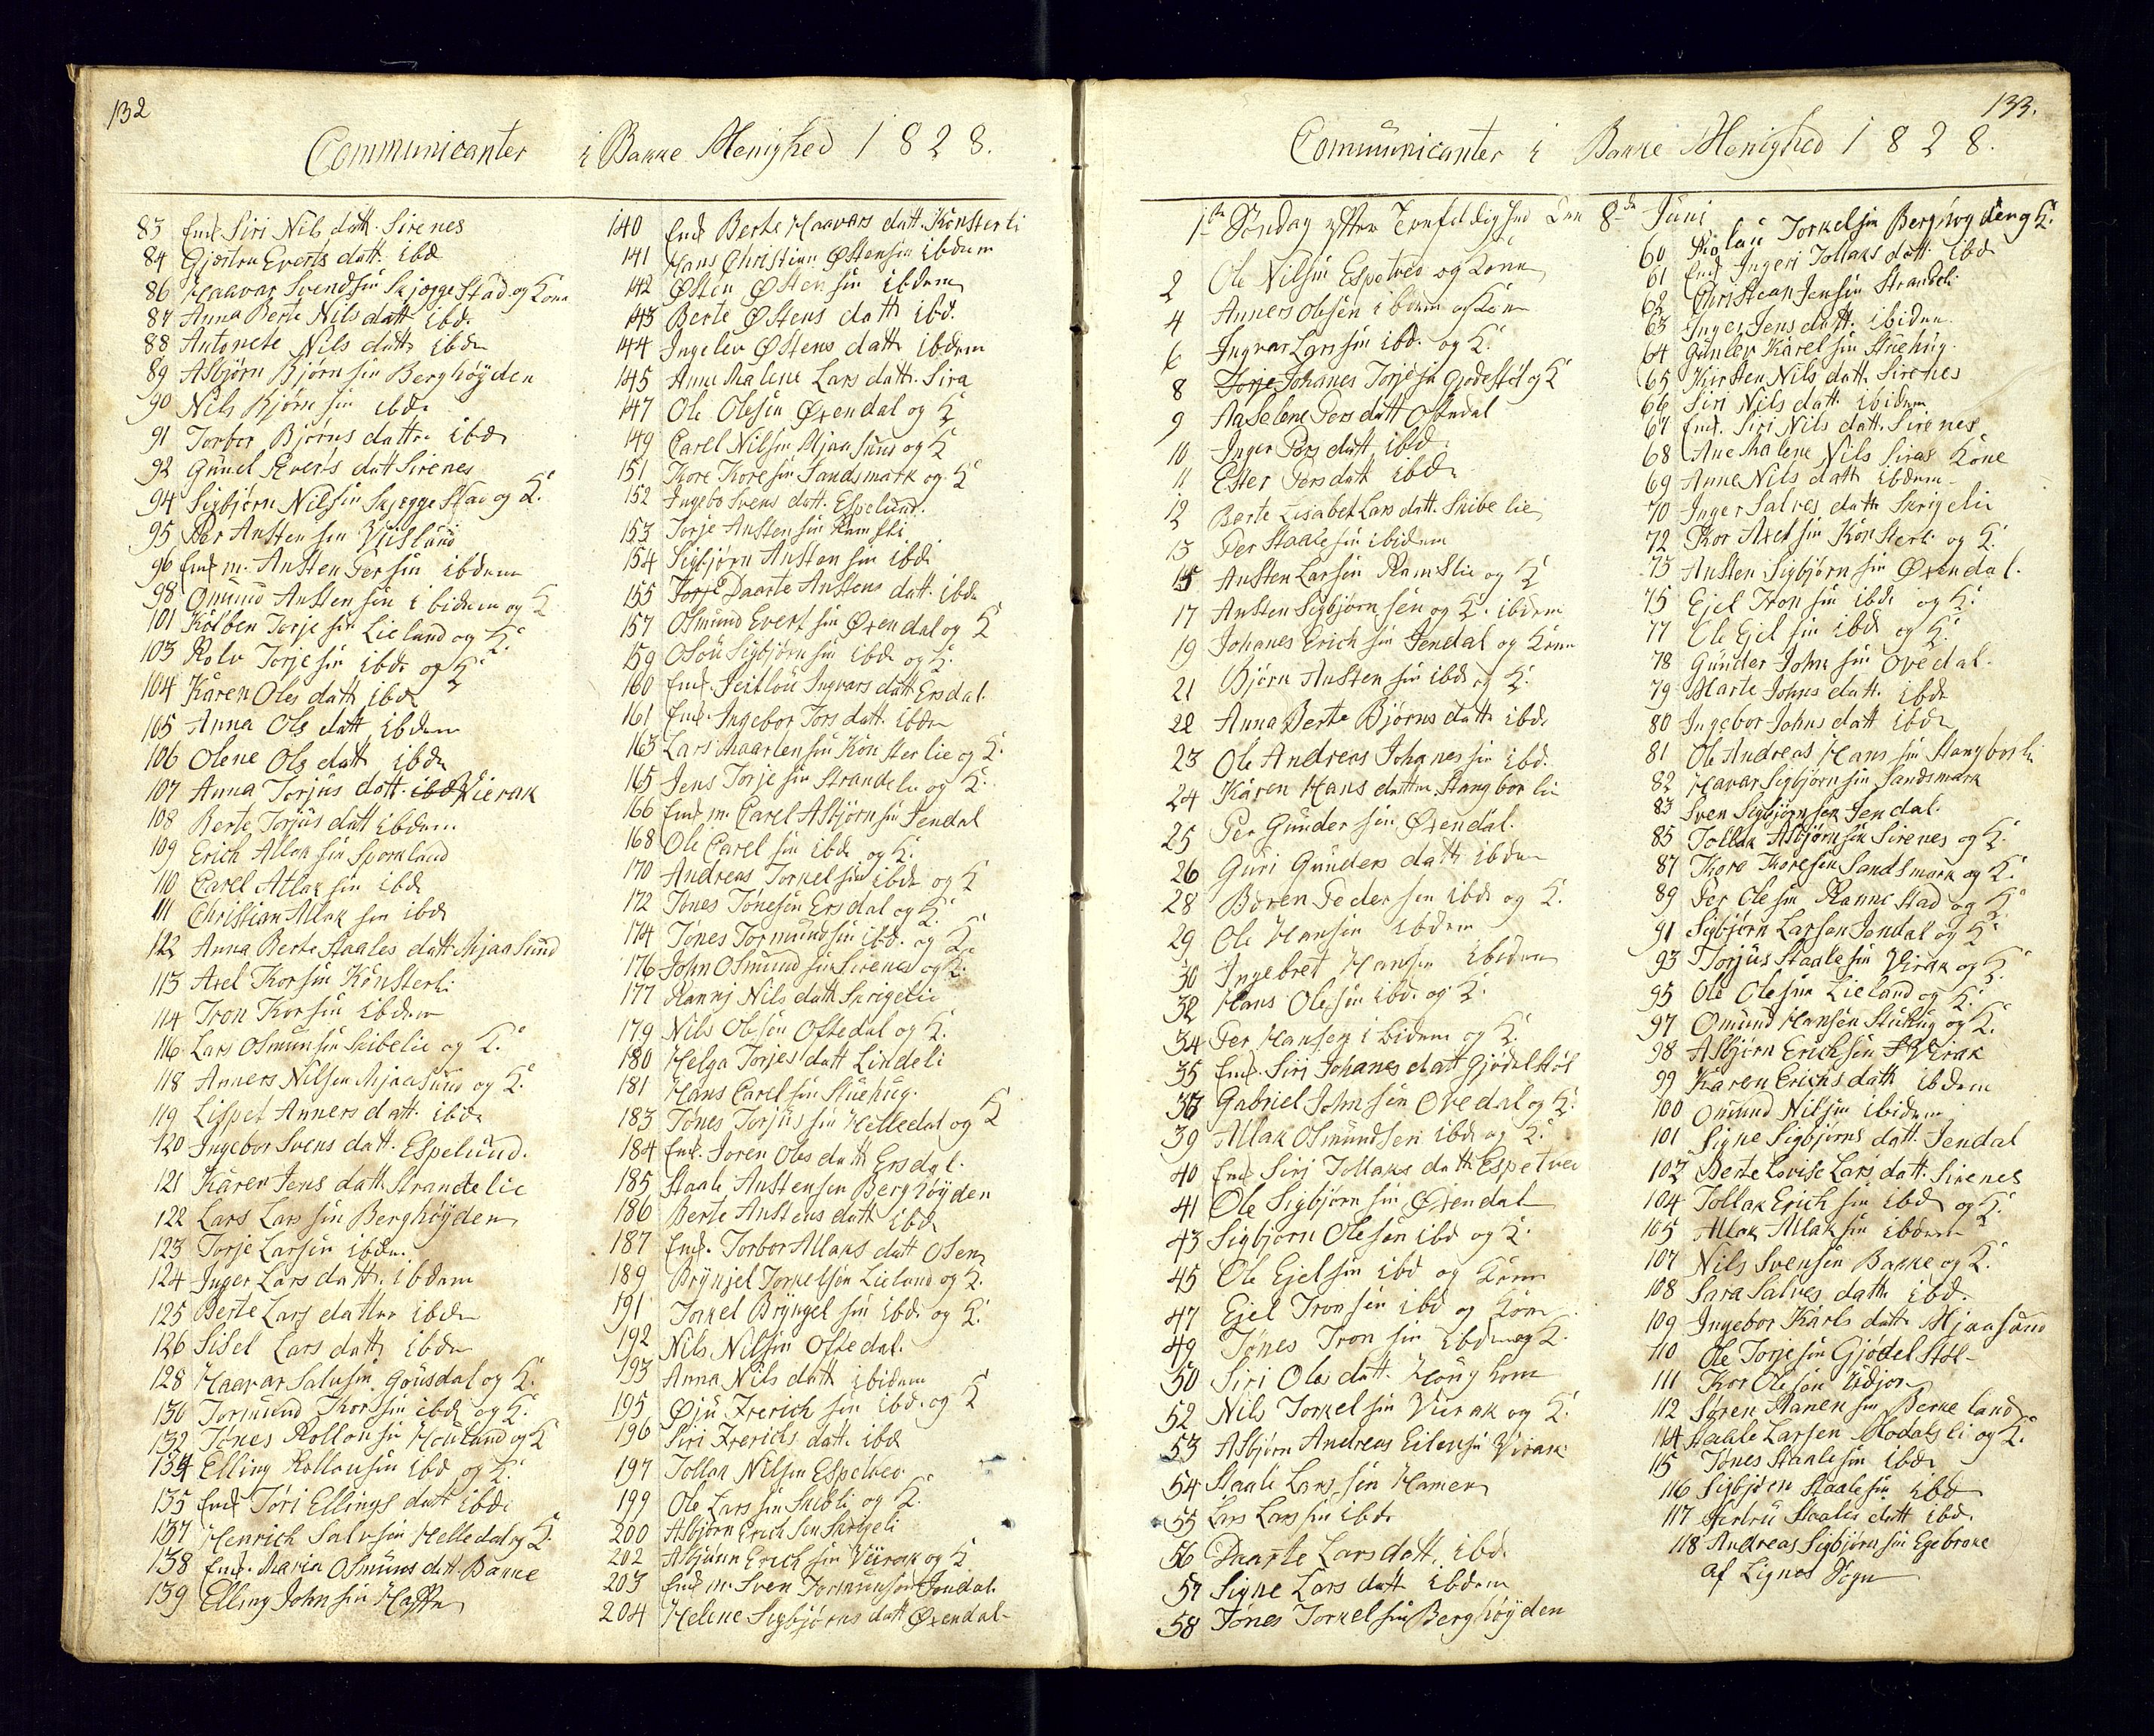 132
Communicanter i Bakke Menighed 1828.
83 Enk Siri Nils datt. Sirenes
84 Gjertru Everts datt. ibd
86 Haavar Svendsin Skjeggestad og Kona
87 Anna Berte Nils datt ibd.
88 Antonete Nils datt ibdm
89 Asbjörn Bjørn sin Berghöyden
90 Nils Bjørn sin ibd.
91 Torbor Bjørns datter ibd
92 Gunel Everts datt Sirenes
94 Sigbjørn Nilsin Skjeggestad og K.
95 Per Ansten sin
96 Enk m. Ansten Persin ibdem
98 Omund Ansten sin ibidem og K
101 Kolben Torje sin Lieland og K.
103 Rolv Torje sin ibd og K
104 Karen Oles datt ibd
105 Anna Ols datt ibdem
106 Olene Ols datt ibd
107 Anna Torjus datt. Vierak
108 Berte Torjus datt ibdem
109 Erich Atlak sin Sporkland
110 Carel Atlak sin ibd
111 Christian Atlak sin ibd
122 Anna Berte Staales datt Mjaasund
113 Axel Korsin Könsterli
114 Tron Korsin ibdem
116 Lars Osmunsin Skibelie og K.
118 Anners Nilsen Mjaasund og K.
119 Lispet Anners datt. ibid
120 Ingebor Svens datt. Espelund.
121 Karen Jens datt Strandelie
122 Lars Lars sin Berghöyden
123 Torje Larsin ibdm
124 Inger Lars datt. ibdem
125 Berte Lars datter ibdm
126 Sisel Lars datt ibdm
128 Haavar Salusin Gousdal og K.
130 Tormund Korsin ibd og K.
132 Tönes Rollousin Houland og K
134 Elling Rollousin ibd og K.
135 Enk Töri Ellings datt ibd
137 Henrich Salvsin Helledal og K
138 Enk. Maria Osmuns datt. Bakke
139 Elling John sin
140 Enk Berte Haavars datt. Könsterli
141 Hans Christian Østensin ibdem
142 Østen Østensin ibdem
143 Berte Østens datt ibd.
144 Ingelev Østens datt ibdem
145 Ane Malene Lars datt. Sira
147 Ole Olesin Øxendal og K
149 Carel Nilsin Mjaasuns og K
151 Kore Kore sin Sandsmark og K
152 Ingebo Svens datt. Espelund.
153 Torje Ansten sin Ramsli
154 Sigbjørn Ansten sin ibd
155 Torje Daarte Anstens datt. ibd
157 Osmund Evert sin Øxendal og K
159 Osou Sigbjørn sin ibd og K.
160 Enk. Ingvars datt Ersdal
161 Enk. Ingebor Tors datt. ibdm
163 Lars Maarten sin Könsterlie og K.
165 Jens Torje sin Strandeli og K.
166 Enk m. Carel Asbjørn sin Jendal
168 Ole Carel sin ibd og K.
170 Andreas Torkel sin ibd og K
172 Tönes Tönesin Ersdal og K.
174 Tönes Tormundsin ibd. og K.
176 John Osmund sin Sirenes og K.
177 Rannj Nils datt Skrigelie
179 Nils Olsen Oftedal og K.
180 Helga Torjes datt Lindeli
181 Hans Carel sin Stuehug.
183 Tönes Torjus sin Helledal og K
184 Enk. Joren Oles datt Ersdal.
185 Staale Anstensen Berghöyden
186 Berte Anstens datt ibd
187 Enk. Torbor Atlaks datt Osen
189 Brynjel Torkelsen Lieland og K.
191 Torkel Bryngel sin ibd. og K.
192 Nils Nilsin Oftedal.
193 Anna Nils datt ibidem
195 Øju Frerich sin ibd. og K
196 Siri Frerichs datt. ibd
197 Tollak Nilsin Espetved
199 Ole Lars sin Skibli og K.
200 Asbjörn Erich sen Skrigeli
202 Asbjønn Erich sin Viirak og K
203 Enk m. Sven Tormunsen Jendal
204 Helene Sigbjørns datt Øxendal
133.
Communicanter i Bakke Menighed 1828.
1ste Søndag efter Trefoldighed den 8de Juni
2 Ole Nilsin Espetved og Kone
4 Anners Olesen ibdem og Kone
6 Ingvar Larssin ibd. og K.
8 Torje Johanes Torje sin Gjödestöl og K
9 Aaselene Pers datt Oftedal
10 Inger Pers datt ibd.
11 Ester Pers datt ibd
12 Berte Lisabet Lars datt. Skibelie
13 Per Staale sin ibidem
15 Ansten Larsen Ramslie og K
17 Ansten Sigbjørn sen og K. ibdem
19 Johanes Erich sin Jendal og Kone
21 Bjørn Ansten sin ibd og K.
22 Anna Berte Bjørns datt ibd.
23 Ole Andreas Johanes sin ibd.
24 Karen Hans datter Stangborlie
25 Per Gunder sin Øxendal.
26 Guri Gunders datt ibdem
28 Bören Peder sen ibd og K.
29 Ole Hansin ibdem
30 Ingebret Hansin ibidem
32 Hans Olesin ibd. og K.
34 Per Hansen ibidem og K.
35 Enk. Siri Johanes datt Gjödelstöl
37 Gabriel John sin Ovedal og K.
39 Atlak Osmundsen ibd og K.
40 Enk Siri Tollaks datt Espetved
41 Ole Sigbjørn sin Øxendal
43 Sigbjørn Olesen ibd og K.
45 Ole Ejelsin ibd og Kone
47 Ejel Tronsin ibd og Kone
49 Tönes Tron sin ibdem og K.
50 Siri Oles datt. Hougkom
52 Nils Torkel sin Viirak og K.
53 Asbjørn Andreas Eilensin Virak
54 Staale Lars sin Hamen
55 Lars Lars sin ibd
56 Daarte Lars datt. ibd.
57 Signe Lars datt ibdem
58 Tönes Torkel sin Berghöyden
60 Niolau Torkelsin Berghøyden og K.
61 Enk Ingeri Tollaks datt ibd
62 Christean Jensin Strandeli
63 Inger Jens datt. ibidem
64 Gunlev Karel sin Stuehug.
65 Kirsten Nils datt Sirenes
66 Siri Nils datt ibidem
67 Enk. Siri Nils datt. Sirenes
68 Ane Malene Nils Siras Kone
69 Anne Nils datt ibdem
70 Inger Salves datt Skrigelie
72 Kor Axel sin Könsterli og K.
73 Ansten Sigbjørn sin Øxendal.
75 Ejel Tron sin ibd og K.
77 Ole Ejel sin ibd og K.
78 Gunder John sin Ovedal.
79 Marte Johns datt. ibd
80 Ingebor Johns datt ibd
81 Ole Andreas Hans sin Stangborli
82 Havar Sigbjørn sin Sandsmark
83 Sven Sigbjørnsen Jendal.
85 Tollak Asbjørn sin Sirenes og K.
87 Kore Koresen Sandsmark og K.
89 Per Olesin Rannestad og K
91 Sigbjørn Larsen Jendal og K
93 Torjus Staalesin Virak og K.
95 Ole Olesin Lieland og K.
97 Omund Hansen Stuhug og K.
98 Asbjørn Erichsin Virak
99 Karen Erichs datt ibdem
100 Omund Nilsin ibidem
101 Signe Sigbjørns datt. Jendal
102 Berte Lovise Lars datt. Sirenes
104 Tollak Erich sin ibd og K.
105 Atlak Atlaksin ibdem
107 Nils Svensin Bakke og K.
108 Sara Salves datt ibd.
109 Ingebor Karls datt Mjaasund
110 Ole Torje sin Gjödelstöl
111 Kor Olesøn Ydjor
112 Søren Hanensin Berkeland
114 Staale Larsen Modalsli og K.
115 Tönes Staalesin ibd
116 Sigbjørn Staalesin ibd
117 Staales datt ibd.
118 Andreas Sigbjørn sin Egebroke
af Lignes Sogn